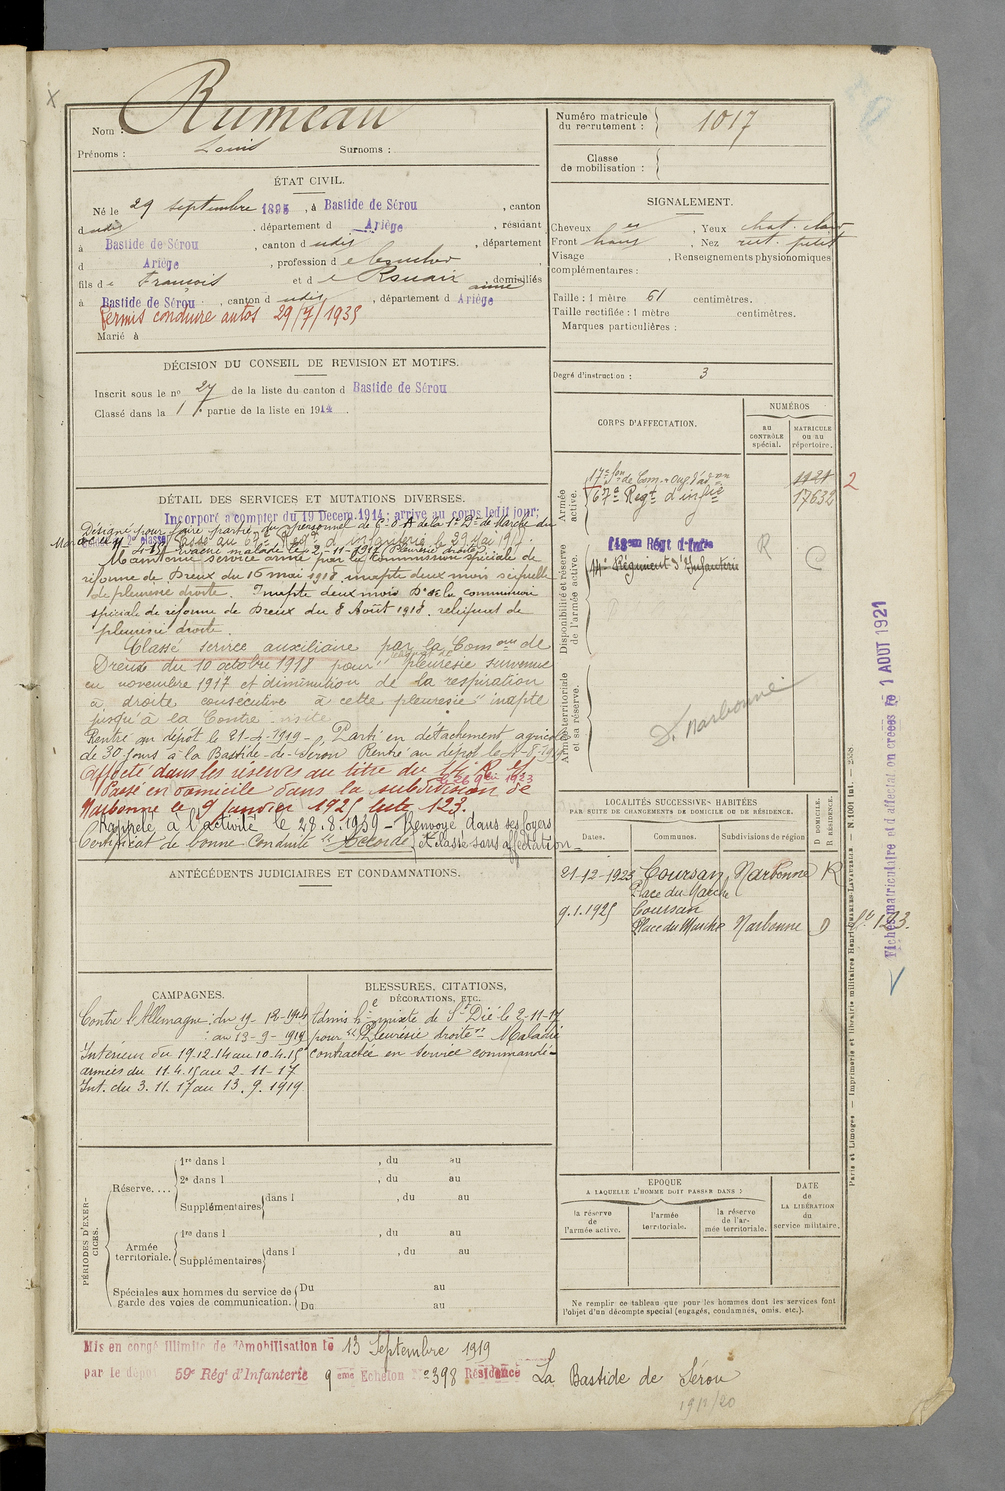 Nom : Rumeau
Prénoms : Louis Surnoms :
Numéro matricule
du recrutement : 1017
Classe
de mobilisation :
ÉTAT CIVIL.
Né le 29 septembre 1895, à Bastide de Sérou, canton
dudit, département d Ariège, résidant
à Bastide de Sérou, canton d udit, département
d Ariège, profession d e boucher,
fils de François et d e Rouaix, domiciliés
à Bastide de Sérou, canton d udit, département d Ariège
Permis conduire autos 29/7/1935
Marié à
SIGNALEMENT.
Cheveux , Yeux chat. clair
Front haut, Nez rect. petit
Visage , Renseignements physionomiques
complémentaires :
Taille : 1 mètre 61 centimètres.
Taille rectifiée : 1 mètre centimètres.
Marques particulières :
Degré d'instruction : 3
DÉCISION DU CONSEIL DE REVISION ET MOTIFS.
Inscrit sous le no 27 de la liste du canton d Bastide de Sérou
Classé dans la 1re partie de la liste en 1914.
CORPS D'AFFECTATION.
NUMÉROS
AU
CONTRÔLE
spécial.
MATRICULE
OU AU
répertoire.
Armée
active.
17e Son de Com. Ouv. d'adon 1121
67e Regt d'infie 17632 2
Disponibilité et réserve
de l'armée active.
148eme Régt d'Infie R
14e Régiment d'Infanterie C
Armée territoriale
et sa réserve.
D. Narbonne
DÉTAIL DES SERVICES ET MUTATIONS DIVERSES.
Incorporé à compter du 19 Decem. 1914; arrivé au corps ledit jour;
Désigné pour faire partie du personnel de C.O.A de la 1e Don de Marche du
Passé au 67e Regt d'infanterie le 29 Mai 1917.
évacué malade le 2-11-1917 Pleurésie droite.
Maintenu service armé par la Commission spéciale de
réforme de Dreux du 16 mai 1918 inapte deux mois séquelle
de pleurésie droite. Inapte deux mois Don de la commission
spéciale de réforme de Dreux du 8 Août 1918. reliquat de
pleurésie droite.
Classé service auxiliaire par la Comon de
Dreux du 10 octobre 1918 pour "pleurésie survenue
en novembre 1917 et diminution de la respiration
à droite consécutive à cette pleurésie" inapte
jusqu'à la Contre-visite
Rentré au dépôt le 21-4-1919 - Parti en détachement agricole
de 30 jours à la Bastide-de-Sérou Rentré au dépôt le
Affecté dans les réserves au titre du
Passé en domicile dans la subdivision de
Narbonne le 9 Janvier 1925 liste 123.
Rappelé à l'activité le 28.8.1939 - Renvoyé dans ses foyers
Certificat de bonne Conduite "Accordé" et classé sans affectation
ANTÉCÉDENTS JUDICIAIRES ET CONDAMNATIONS.
LOCALITÉS SUCCESSIVES HABITÉES
PAR SUITE DE CHANGEMENTS DE DOMICILE OU DE RÉSIDENCE.
Dates. Communes. Subdivisions de région D DOMICILE. R RÉSIDENCE.
21-12-1923 Coursan, Narbonne R
Place du Marché
9.1.1925 Coursan
Place du Marché Narbonne D Le 123.
CAMPAGNES.
Contre l'Allemagne: du 19-12-1914
au 13-9-1919
Intérieur du 19.12.14 au 10.4.15
armées du 11.4.15 au 2-11-17
Int. du 3.11.17 au 13.9.1919
BLESSURES, CITATIONS,
DÉCORATIONS, ETC.
Admis h. mixte de St Dié le 2-11-17
pour "Pleurésie droite" Maladie
contractée en service commandé
PÉRIODES D'EXERCICES.
Réserve....
1re dans l , du au
2e dans l , du au
Supplémentaires dans l , du au
Armée
territoriale.
1re dans l , du au
Supplémentaires dans l , du au
Spéciales aux hommes du service de
garde des voies de communication.
Du au
Du au
EPOQUE
A LAQUELLE L'HOMME DOIT PASSER DANS :
la réserve
de
l'armée active.
l'armée
territoriale.
la réserve
de l'armée territoriale.
DATE
de
LA LIBÉRATION
du
service militaire.
Ne remplir ce tableau que pour les hommes dont les services font
l'objet d'un décompte spécial (engagés, condamnés, omis, etc.).
Mis en congé illimité de démobilisation le 13 Septembre 1919
par le dépôt 59e Régt d'Infanterie 9eme Echelon No 398 Résidence La Bastide de Sérou
19/2/20
Paris et Limoges — Imprimerie et librairie militaires Henri CHARLES-LAVAUZELLE — N. 1001 int.
Fiches matriculaire et d'affectation créées le 1 AOUT 1921